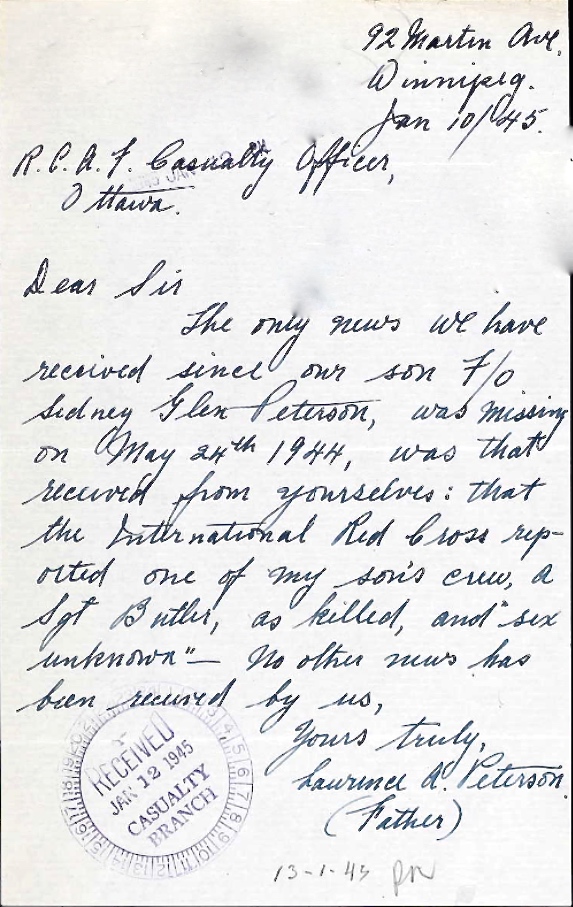 92 Martin Ave.
Winnipeg.
Jan 10/45.
R.C.A.F. Casualty Officer,
Ottawa.
Dear Sir
The only news we have
received since our son F/O
Sidney Glen Peterson, was missing
on May 24th 1944, was that
received from yourselves: that
the International Red Cross rep-
orted one of my son's crew, a
Sgt Butler, as killed, and "sex
unknown" — No other news has
been received by us,
Yours truly,
Laurence A. Peterson.
(Father)
RECEIVED
JAN 12 1945
CASUALTY
BRANCH
13-1-45